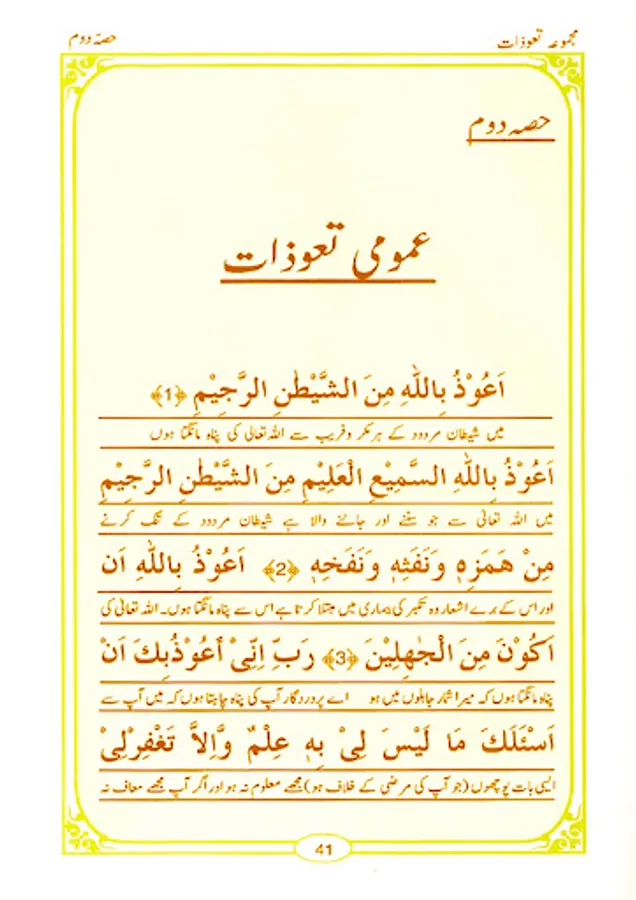 مجموعہ تعوذات
حصہ دوم
حصہ دوم
عمومی تعوذات
اَعُوْذُ بِاللّٰهِ مِنَ الشَّيْطٰنِ الرَّجِيْمِ ﴿1﴾
میں شیطان مردود کے ہر مکر و فریب سے اللہ تعالیٰ کی پناہ مانگتا ہوں
اَعُوْذُ بِاللّٰهِ السَّمِيْعِ الْعَلِيْمِ مِنَ الشَّيْطٰنِ الرَّجِيْمِ
میں اللہ تعالیٰ سے جو سننے اور جاننے والا ہے شیطان مردود کے تنگ کرنے
مِنْ هَمَزِهٖ وَنَفَثِهٖ وَنَفَخِهٖ ﴿2﴾ اَعُوْذُ بِاللّٰهِ اَن
اور اس کے برے اشعار وہ تکبر کی بیماری میں مبتلا کرتا ہے اس سے پناہ مانگتا ہوں۔ اللہ تعالیٰ کی
اَكُوْنَ مِنَ الْجٰهِلِيْنَ ﴿3﴾ رَبِّ اِنِّىْ اَعُوْذُبِكَ اَنْ
پناہ مانگتا ہوں کہ میرا شمار جاہلوں میں ہو اے پروردگار آپ کی پناہ چاہتا ہوں کہ میں آپ سے
اَسْئَلَكَ مَا لَيْسَ لِىْ بِهٖ عِلْمٌ وَّاِلَّا تَغْفِرْلِىْ
ایسی بات پوچھوں (جو آپ کی مرضی کے خلاف ہو) مجھے معلوم نہ ہو اور اگر آپ مجھے معاف نہ
41